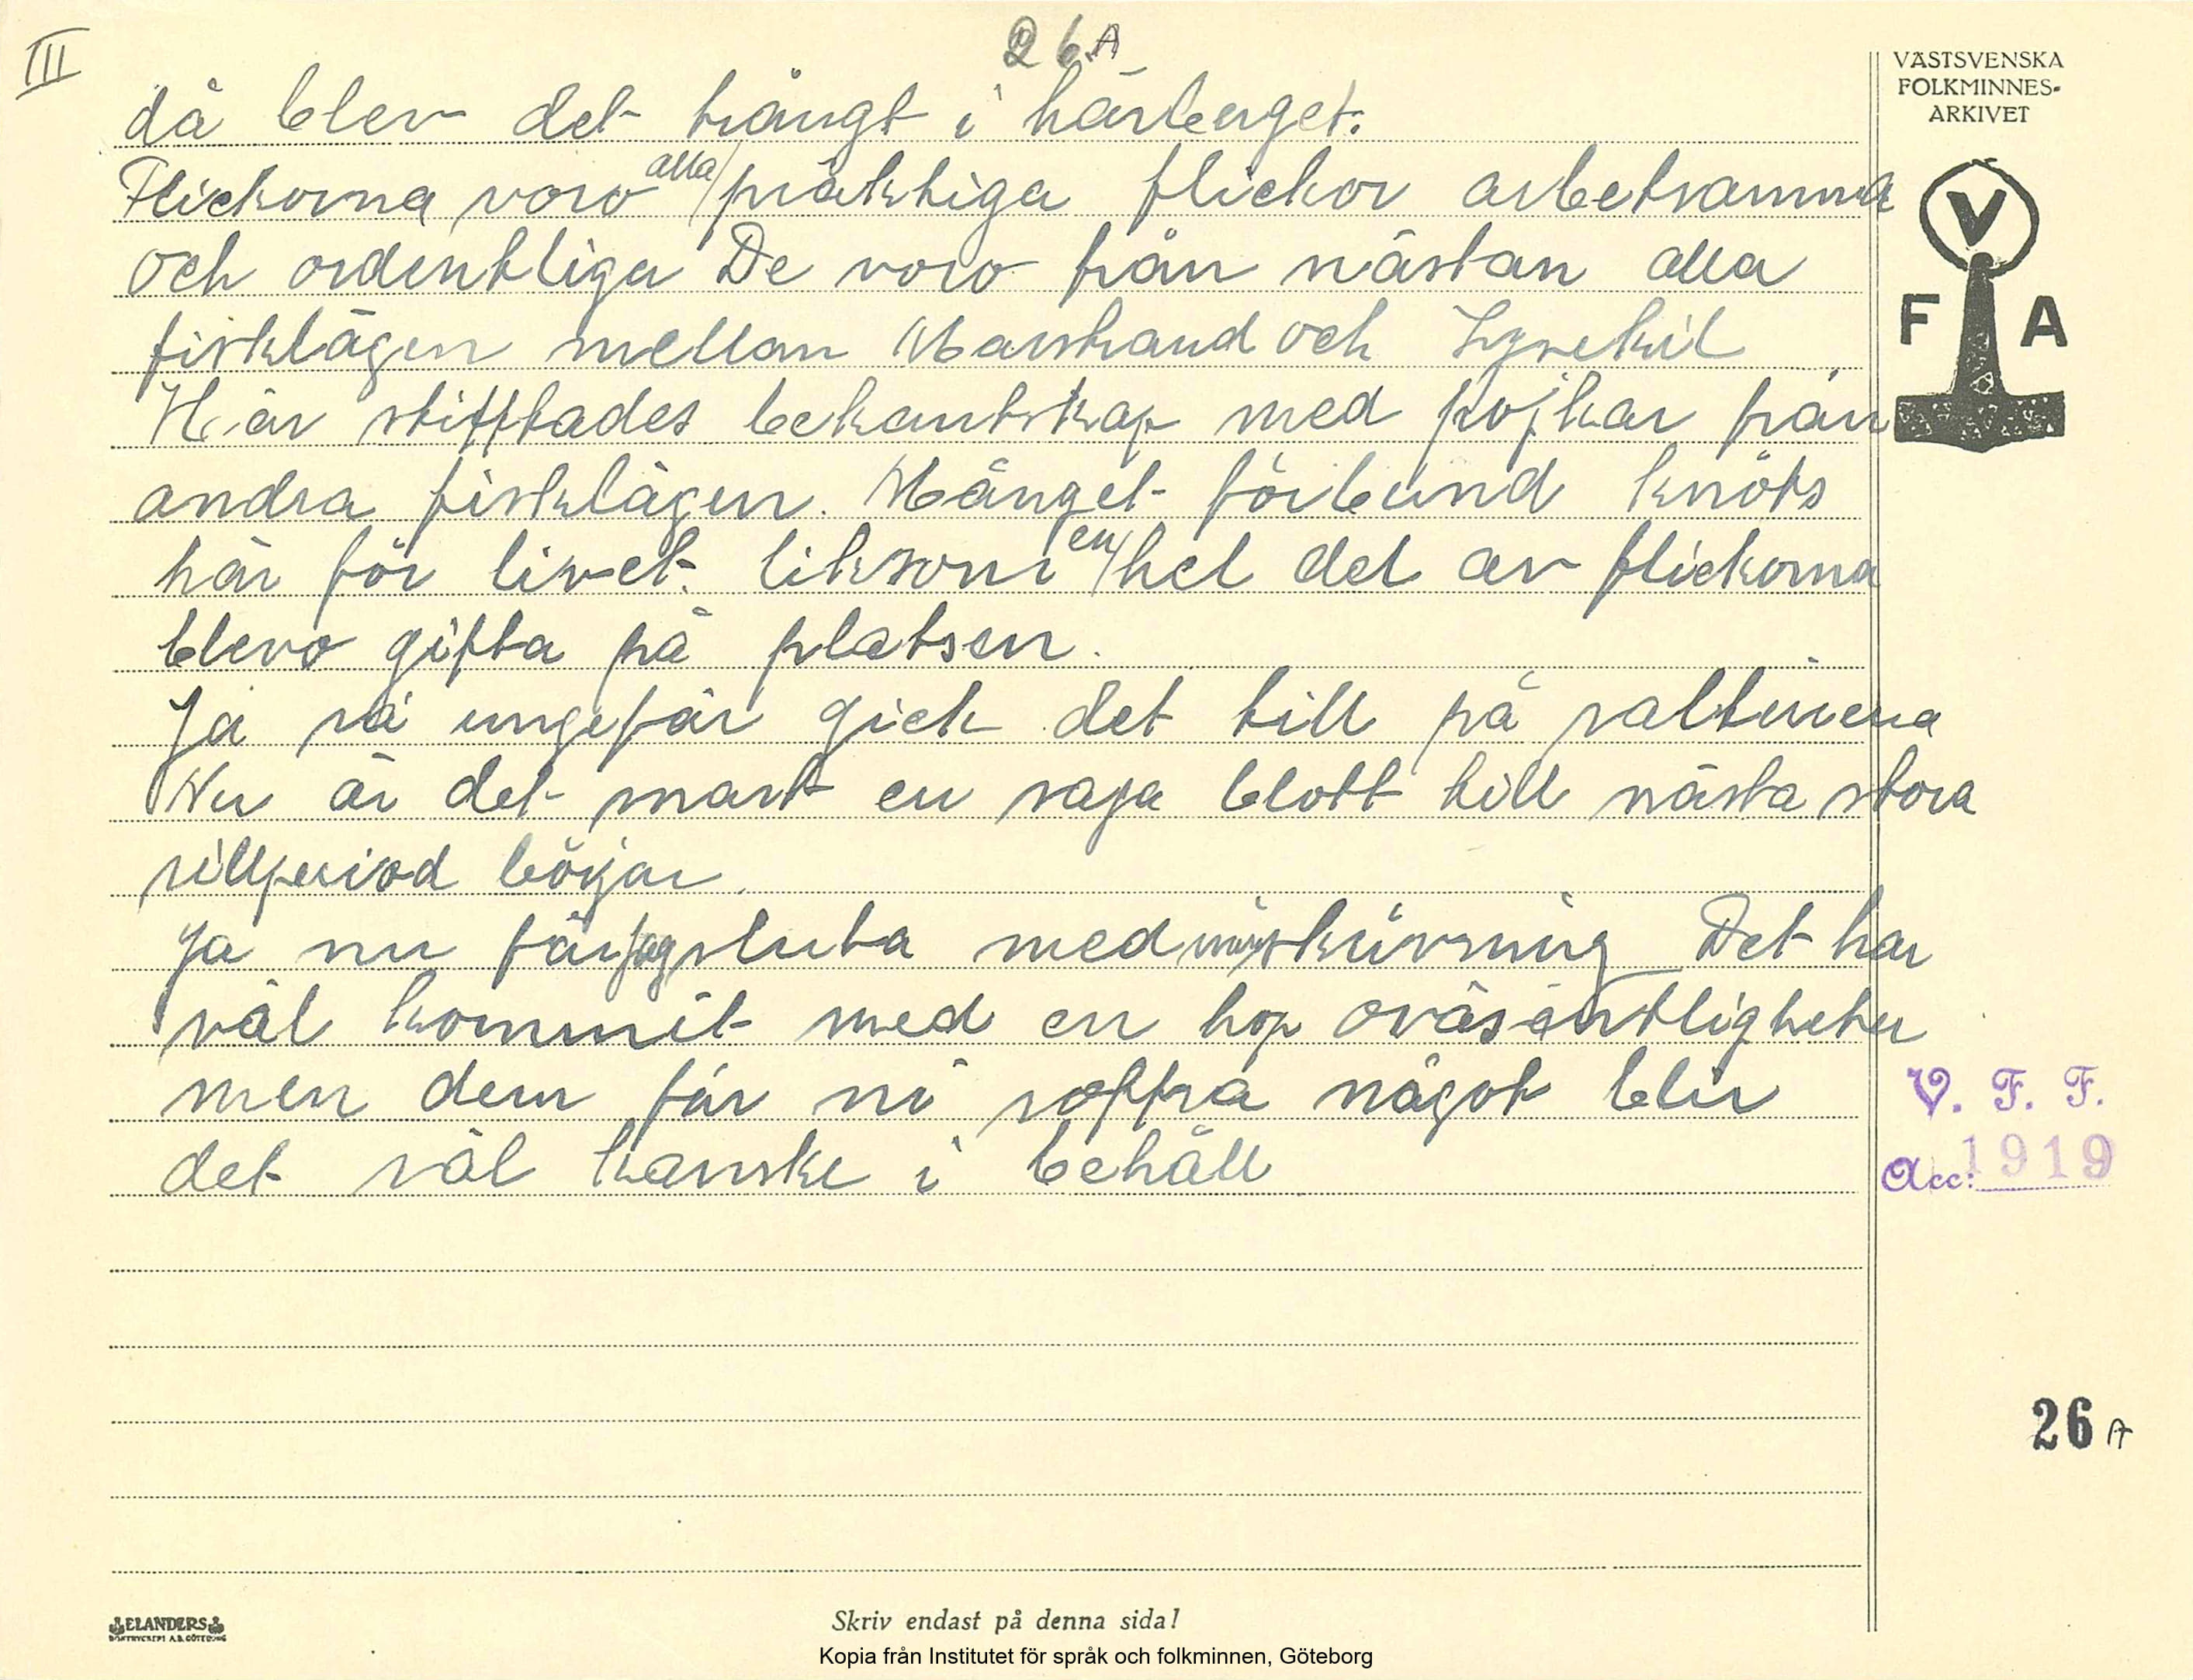 III
26A
då blev det trångt i härberget.
Flickorna voro alla präktiga flickor arbetsamma
och ordentliga De voro från nästan alla
fisklägen mellan Marstrand och Lysekil
Här stifftades bekantskap med pojkar från
andra fisklägen. Månget förbund knöts
här för livet. liksom en hel del av flickorna
blevo gifta på platsen.
Ja så ungefär gick det till på salterierna
Nu är det snart en saga blott till nästa stora
sillperiod börjar.
Ja nu får jag sluta med min skrivning Det har
väl kommit med en hop oväsentligheter
men dem får ni soppa något blir
det väl kanske i behåll
VÄSTSVENSKA
FOLKMINNES-
ARKIVET
V
F A
V. F. F.
Acc: 1919
26 A
ELANDERS
BOKTRYCKERI A.B. GÖTEBORG
Skriv endast på denna sida!
Kopia från Institutet för språk och folkminnen, Göteborg